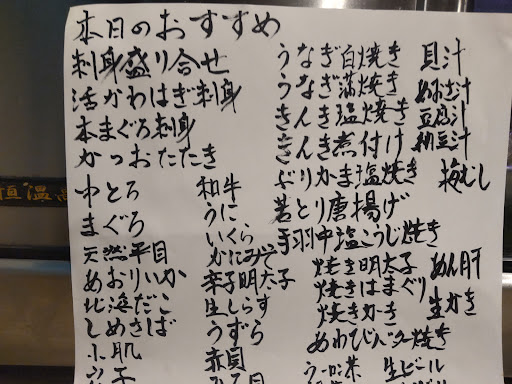 本日のおすすめ
刺身盛り合せ
活かわはぎ刺身
本まぐろ刺身
かつおたたき
中とろ
まぐろ
天然平目
あおりいか
北海だこ
しめさば
小肌
和牛
うに
いくら
かにみそ
辛子明太子
生しらす
うずら
赤貝
うなぎ白焼き
うなぎ蒲焼き
きんき塩焼き
きんき煮付け
ぶりかま塩焼き
若とり唐揚げ
手羽中塩こうじ焼き
焼き明太子
焼きはまぐり
焼きかき
あわびバター焼き
ウーロン茶
生ビール
貝汁
あおさ汁
豆腐汁
納豆汁
梅むし
あん肝
生かき
恒温高